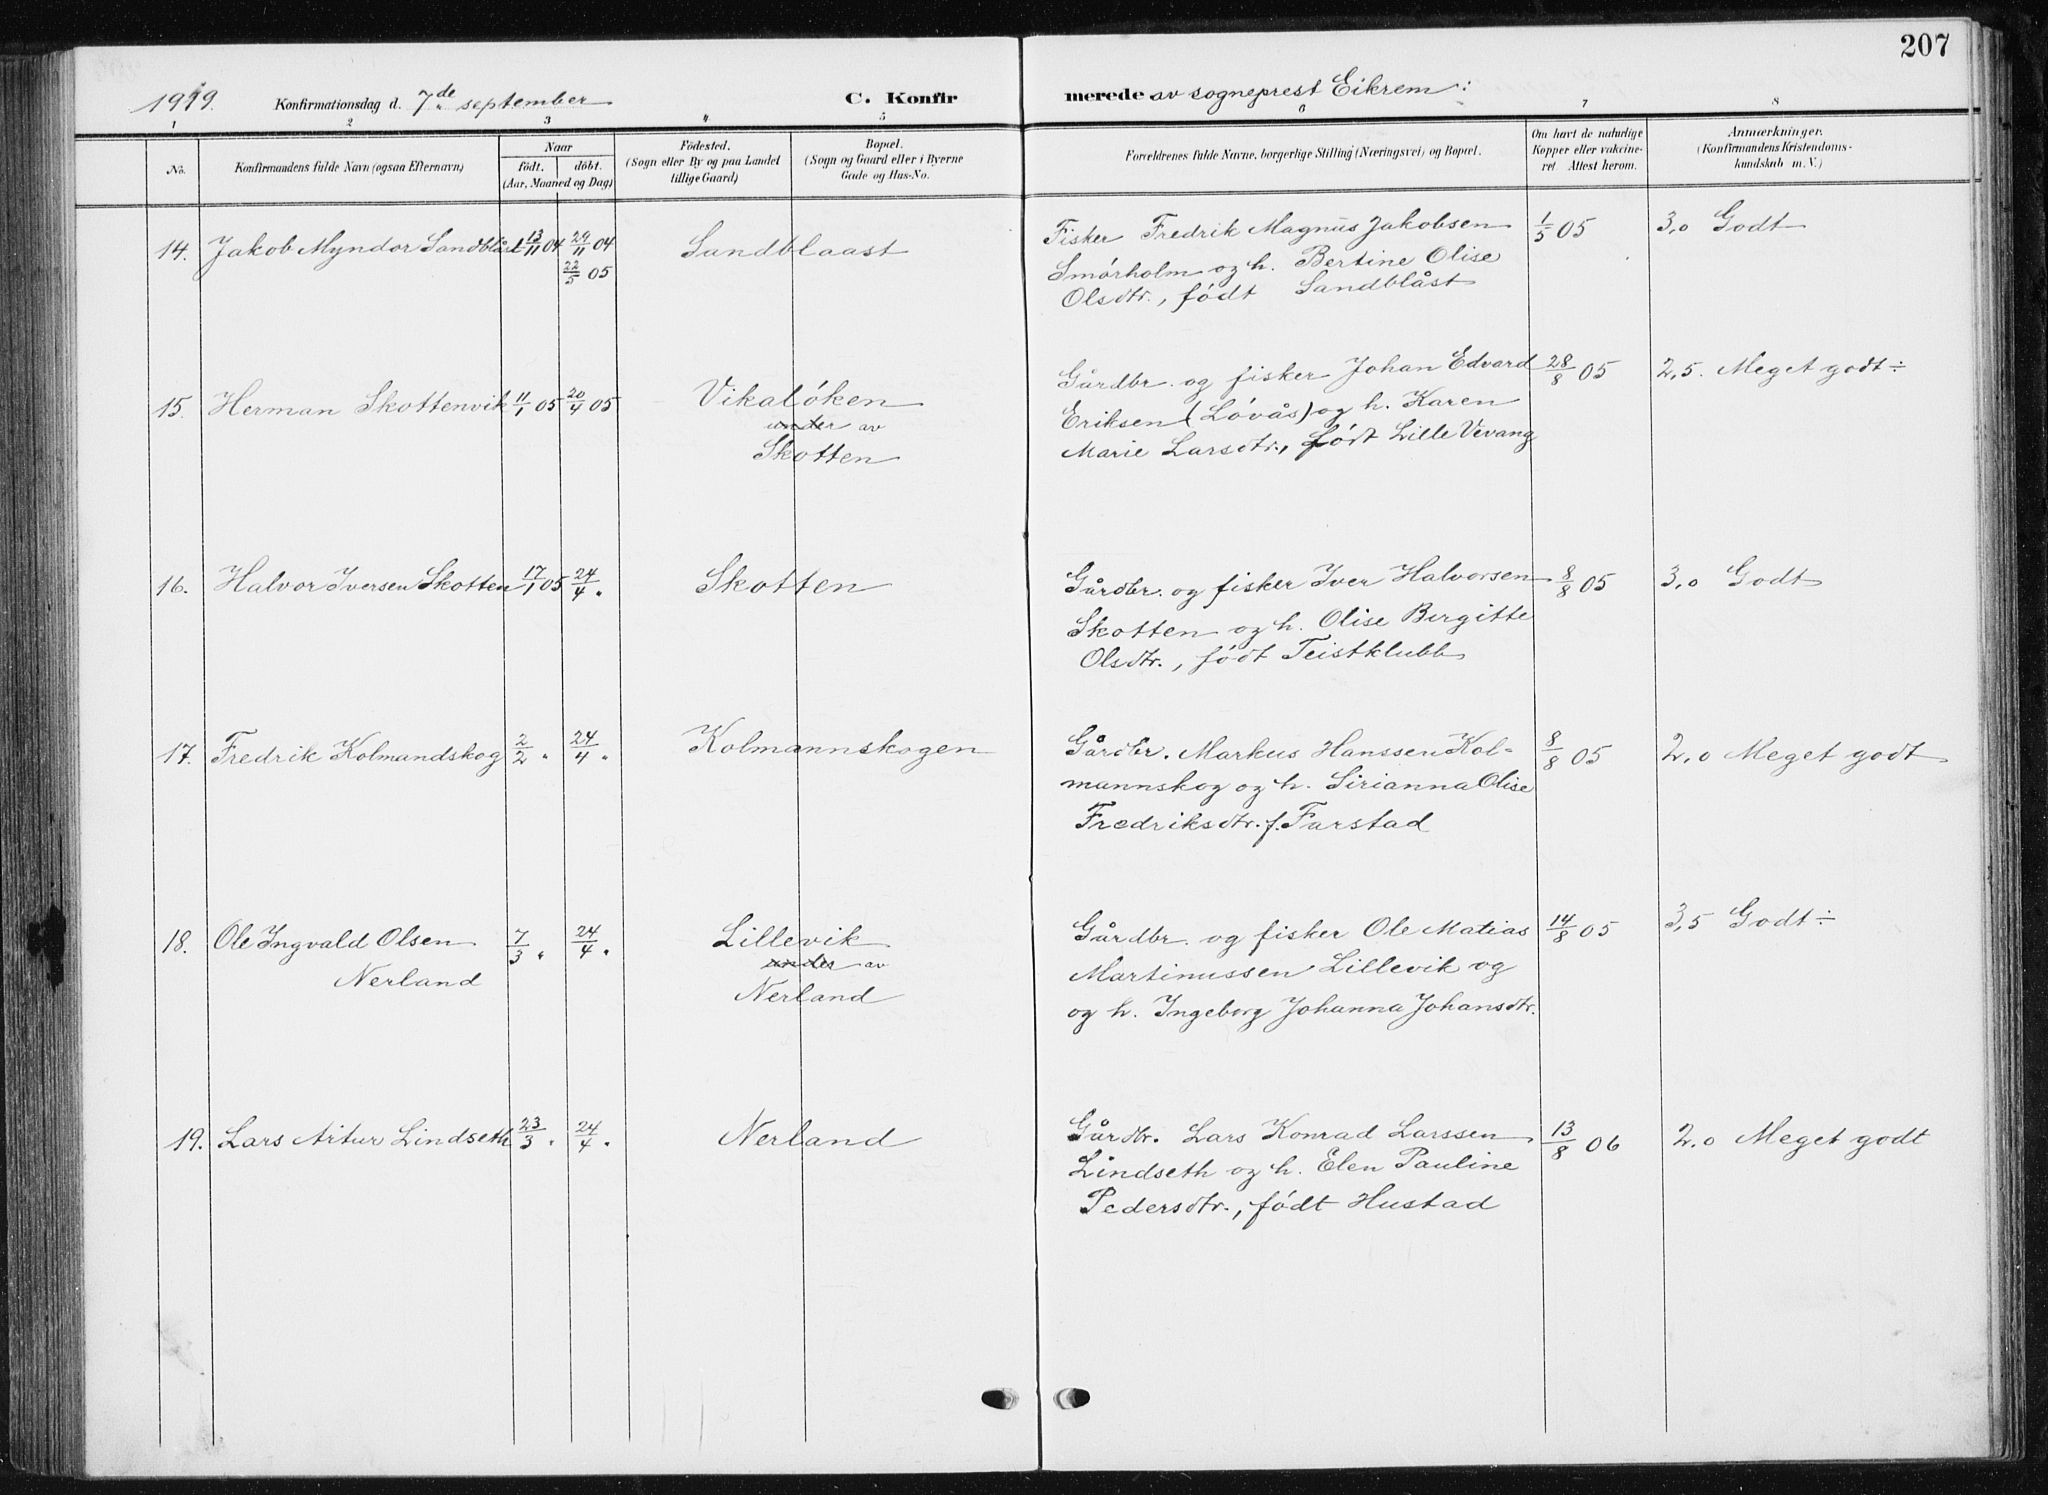 207
1919. Konfirmationsdag d. 7de september C. Konfirmerede av sogneprest Eikrem:
1 2 3 4 5 6 7 8
No.
Konfirmandens fulde Navn (ogsaa Efternavn)
Naar
født. døbt.
(Aar, Maaned og Dag)
Fødested.
(Sogn eller By og paa Landet
tillige Gaard)
Bopæl.
(Sogn og Gaard eller i Byerne
Gade og Hus-No.
Forældrenes fulde Navne, borgerlige Stilling (Næringsvei) og Bopæl.
Om havt de naturlige
Kopper eller vakcine-
ret. Attest herom.
Anmærkninger.
(Konfirmandens Kristendoms-
kundskab m. V.)
14. Jakob Myndor Sandblåst 13/11 04 29/11 04 Sandblaast Fisker Fredrik Magnus Jakobsen 1/5 05 3,0 Godt
22/5 05 Smørholm og h. Bertine Olise
Olsdtr., født Sandblåst
15. Herman Skottenvik 11/1 05 20/4 05 Vikaløken Gårdbr. og fisker Johan Edvard 28/8 05 2,5. Meget godt ÷
under av Eriksen (Løvås) og h. Karen
Skotten Marie Larsdtr., født Lille Vevang
16. Halvor Iversen Skotten 17/1 05 24/4 " Skotten Gårdbr. og fisker Iver Halvorsen 8/8 05 3,0 Godt
Skotten og h. Olise Birgitte
Olsdtr., født Teistklubb
17. Fredrik Kolmandskog 2/2 " 24/4 " Kolmannskogen Gårdbr. Markus Hanssen Kol- 8/8 05 2,0 Meget godt
mannskog og h. Sirianna Olise
Fredriksdtr. f. Farstad
18. Ole Ingvald Olsen 7/3 " 24/4 " Lillevik Gårdbr. og fisker Ole Matias 14/8 05 3,5 Godt ÷
Nerland under av Martinussen Lillevik og
Nerland og h. Ingeborg Johanna Johansdtr.
19. Lars Artur Lindseth 23/3 " 24/4 " Nerland Gårdbr. Lars Konrad Larssen 13/8 06 2,0 Meget godt
Lindseth og h. Elen Pauline
Pedersdtr., født Hustad